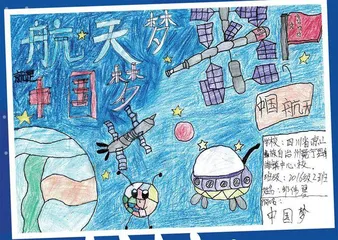 航天梦
中国梦
中国航天
学校：四川省凉山
彝族自治州冕宁县
中心校
班级：2016级23班
姓名：
中国梦